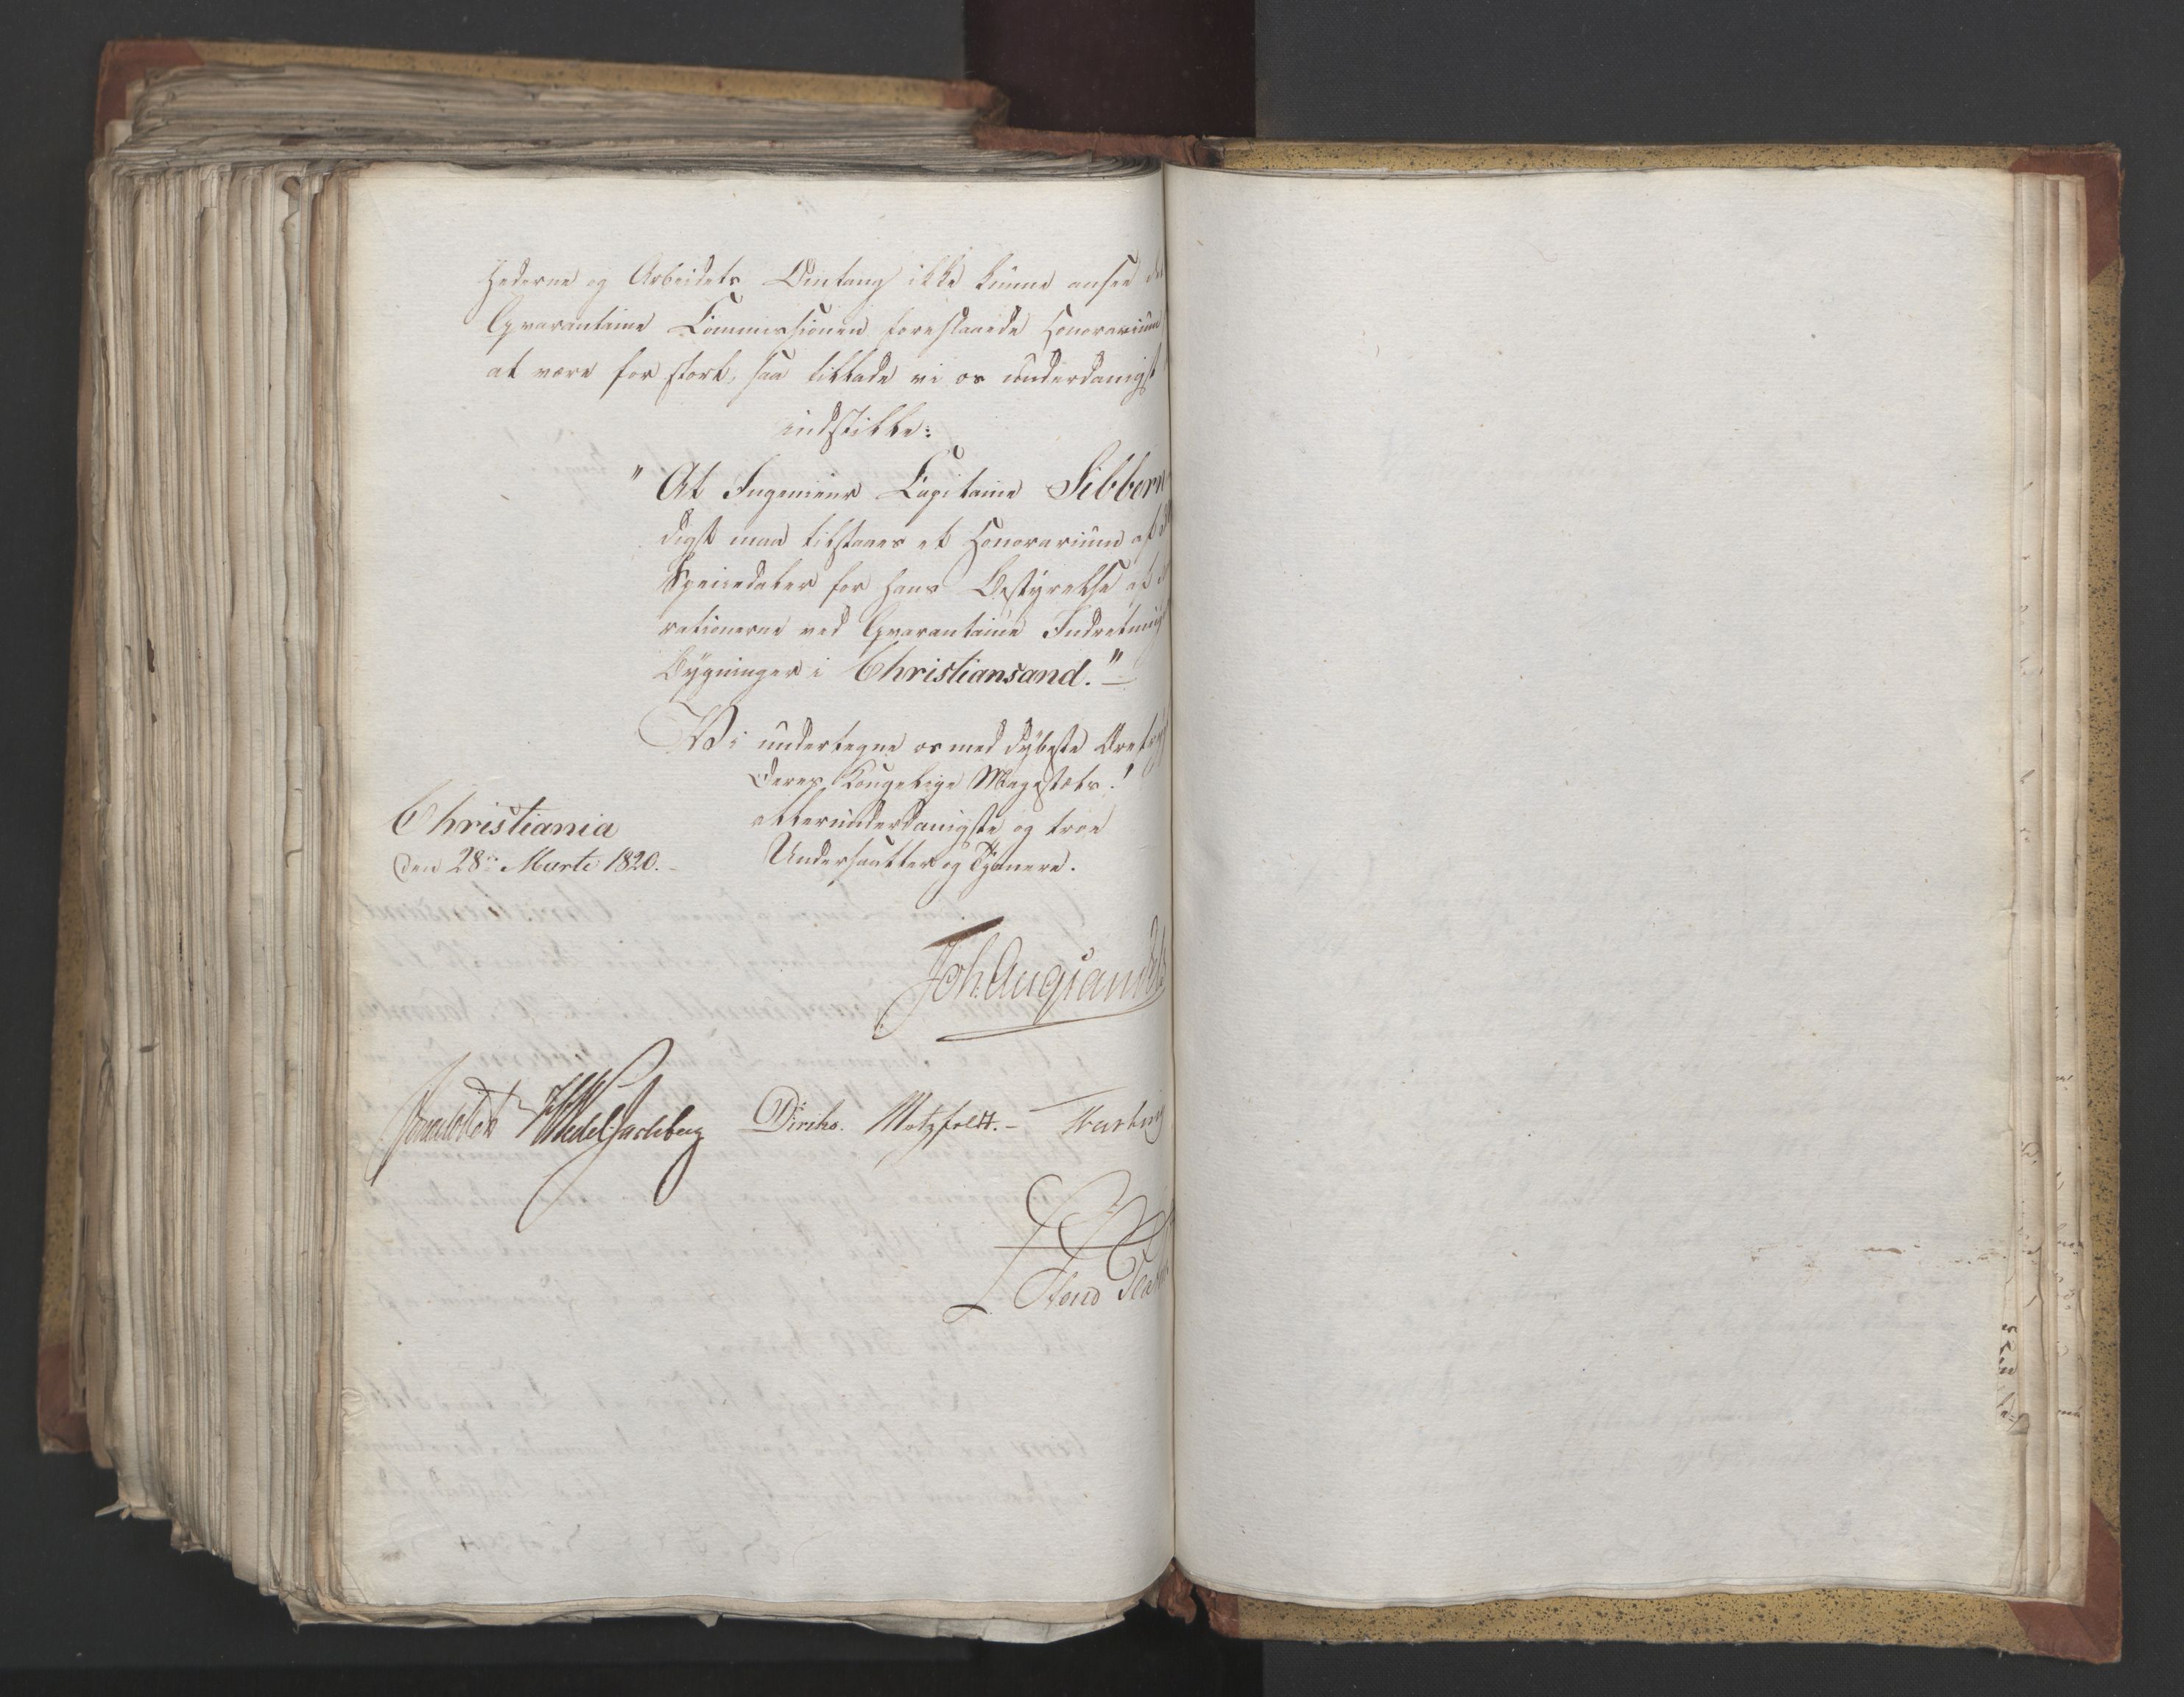 hederne og Arbeidets Omfang ikke kunne ansee det
Qvarantaine Commissionen foreslaaede Honorarium
at være for stort, saa tillade vi os underdanigst
indstille:
"At Ingenieur Capitaine Sibbern
digst maa tilstaaes et Honorarium af
Speciedaler for hans Bestyrelse af
rationerne ved Qvarantaine Indretning
Bygninger i Christiansand."
Vi undertegne os med dybeste Ærefrygt
Deres Kongelige Majestæts!
allerunderdanigste og troe
Undersaatter og Tjenere.
Christiania
den 28de Marti 1820.
Joh. Aug. Sandels
HWedelJarlsberg Diriks. Motzfeldt.